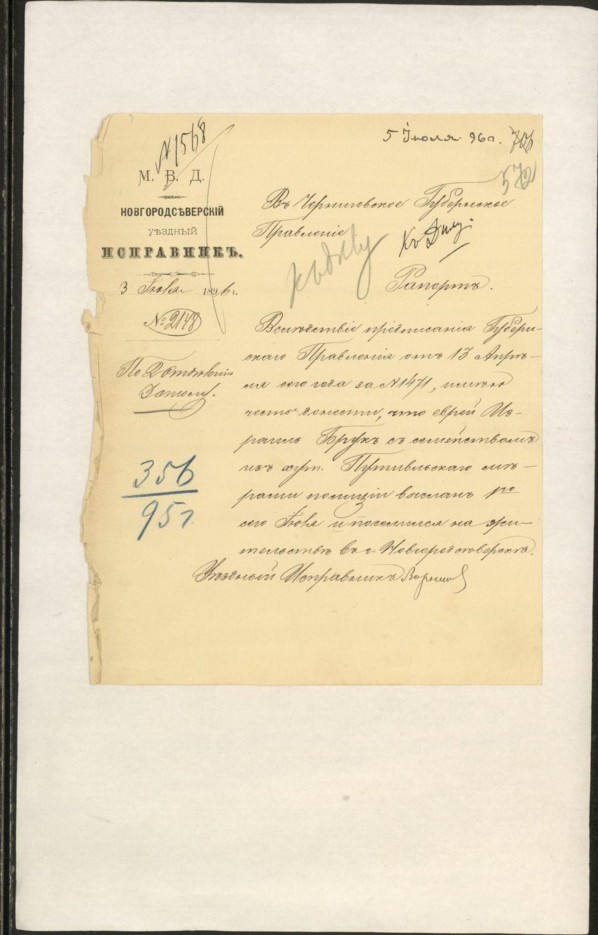 5 Июля 96 г.
572
№ 1568
М. В. Д.
НОВГОРОДСѢВЕРСКІЙ
УѢЗДНЫЙ
ИСПРАВНИКЪ.
3 1896 г.
№ 2148
По
356
95 г
Въ Черниговское Губернское
Правленіе
Къ дѣлу
Рапортъ.
Вслѣдствіе предписанія Губерн-
скаго Правленія отъ 13 Апрѣ-
ля сего года за № 1471, имѣю
честь донести, что еврей Из-
раиль Брукъ съ семействомъ
изъ хут. Путивльскаго мѣ-
рами полиціи высланъ 1го
сего и поселился на жи-
тельство въ г. Новгородсѣверскѣ.
Уѣздный Исправникъ